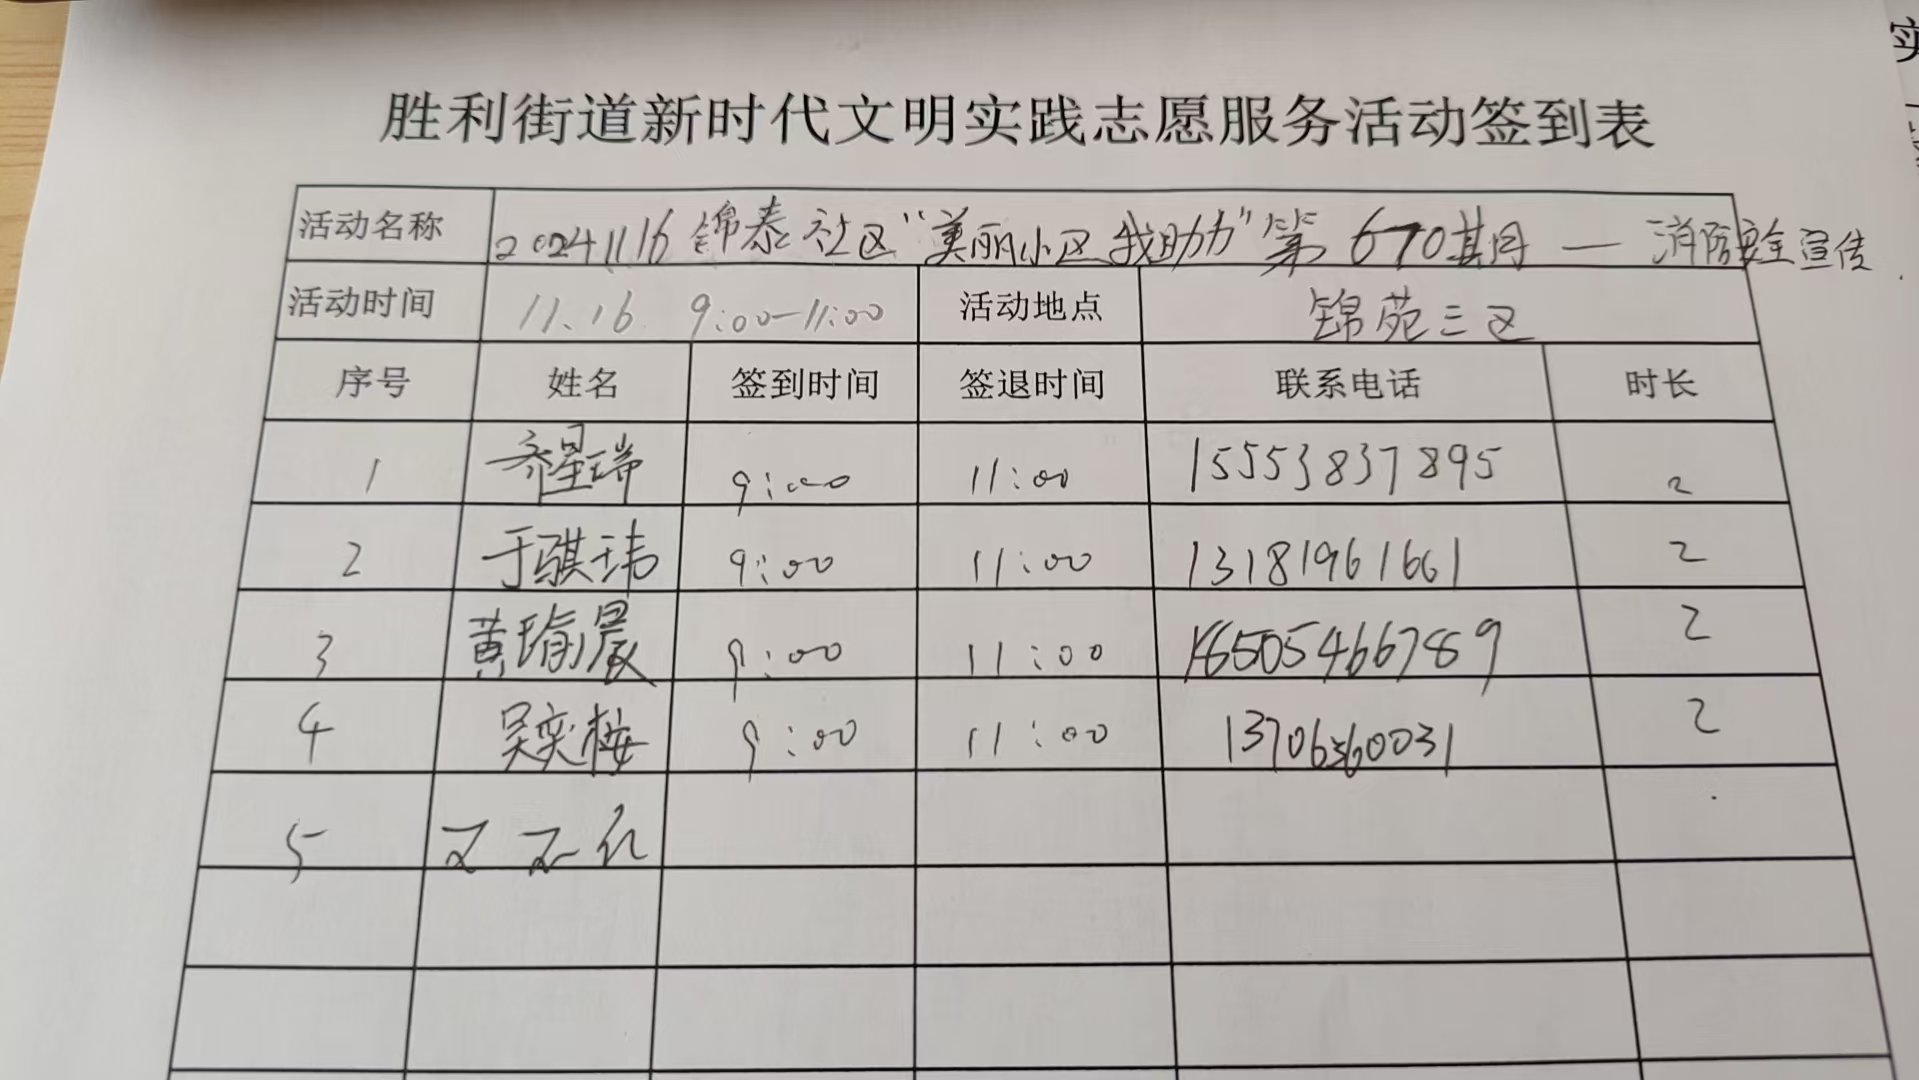 胜利街道新时代文明实践志愿服务活动签到表
活动名称 20241116 锦泰社区“美丽小区我助力”第670期 — 消防安全宣传
活动时间 11.16 9:00-11:00 活动地点 锦苑三区
序号 姓名 签到时间 签退时间 联系电话 时长
1 齐星瑞 9:00 11:00 15553837895 2
2 于骐玮 9:00 11:00 13181961661 2
3 黄瑜晨 9:00 11:00 186505466789 2
4 吴奕桉 9:00 11:00 2
5
实